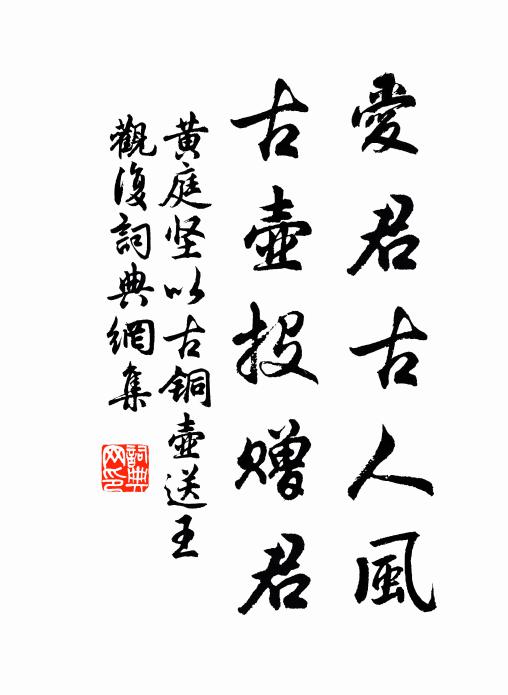 愛君古人風
古壺投贈君
黄庭坚以古铜壺送王
觀復詞典網集
詞典
网印